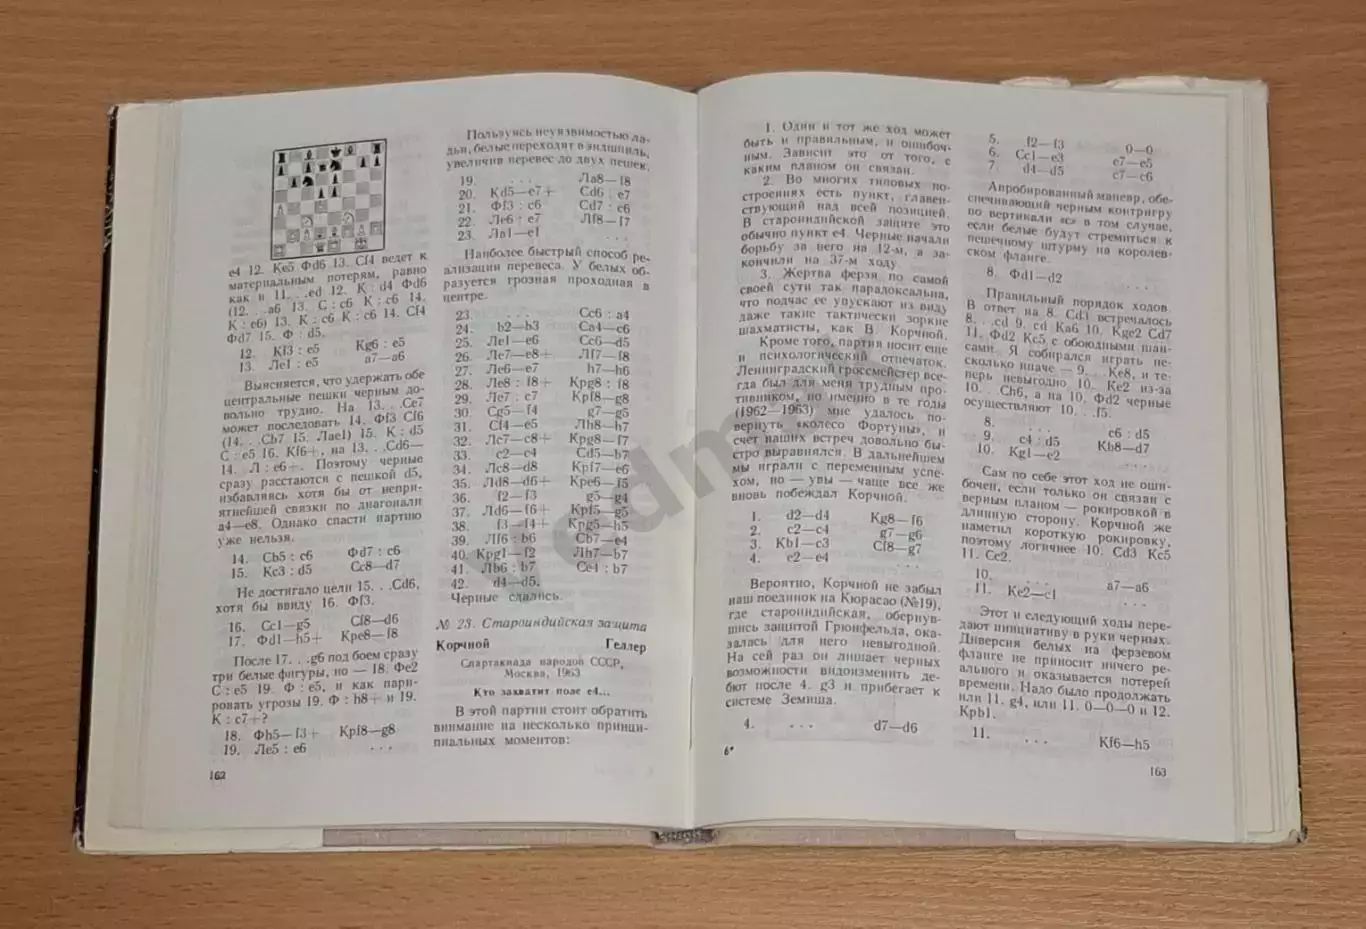 е4 12. Ке5 Фd6 13. Сf4 ведет к
материальным потерям, равно
как и 11. . .ed 12. К : d4 Фd6
(12. . .а6 13. С : с6 К : с6 14.
К : е6) 13. К : с6 К : с6 14. Сf4
Фd7 15. Ф : d5.
12. Кf3 : е5 Кg6 : е5
13. Ле1 : е5 а7—а6
Выясняется, что удержать обе
центральные пешки черным до-
вольно трудно. На 13. . .Се7
может последовать 14. Фf3 Сf6
(14. . .Сb7 15. Лае1) 15. К : d5
С : е5 16. Кf6+, на 13. . .Сd6—
14. Л : е6+. Поэтому черные
сразу расстаются с пешкой d5,
избавляясь хотя бы от непри-
ятнейшей связки по диагонали
а4—е8. Однако спасти партию
уже нельзя.
14. Сb5 : с6 Фd7 : с6
15. Кс3 : d5 Сс8—d7
Не достигало цели 15. . .Сd6,
хотя бы ввиду 16. Фf3.
16. Сс1—g5 Сf8—d6
17. Фd1—h5+ Кре8—f8
После 17. . .g6 под боем сразу
три белые фигуры, но — 18. Фе2
С : е5 19. Ф : е5, и как пари-
ровать угрозы 19. Ф : h8+ и 19.
К : с7+?
18. Фh5—f3+ Крf8—g8
19. Ле5 : е6 . . .
162
Пользуясь неуязвимостью ла-
дьи, белые переходят в эндшпиль,
увеличив перевес до двух пешек.
19. . . . Ла8—f8
20. Кd5—е7+ Сd6 : е7
21. Фf3 : с6 Сd7 : с6
22. Ле6 : е7 Лf8—f7
23. Ла1—е1 . . .
Наиболее быстрый способ ре-
ализации перевеса. У белых об-
разуется грозная проходная в
центре.
23. . . . Сс6 : а4
24. b2—b3 Са4—с6
25. Ле1—е6 Сс6—d5
26. Ле7—е8+ Лf7—f8
27. Ле6—е7 h7—h6
28. Ле8 : f8+ Крg8 : f8
29. Ле7 : с7 Крf8—g8
30. Сg5—f4 g7—g5
31. Сf4—е5 Лh8—h7
32. Лс7—с8+ Крg8—f7
33. с2—с4 Сd5—b7
34. Лс8—d8 Крf7—е6
35. Лd8—d6+ Кре6—f5
36. f2—f3 g5—g4
37. Лd6—f6+ Крf5—g5
38. f3—f4+ Крg5—h5
39. Лf6 : b6 Сb7—е4
40. Крg1—f2 Лh7—b7
41. Лb6 : b7 Се4 : b7
42. d4—d5.
Черные сдались.
№ 23. Староиндийская защита
Корчной Геллер
Спартакиада народов СССР,
Москва, 1963
Кто захватит поле е4...
В этой партии стоит обратить
внимание на несколько принци-
пиальных моментов:
1. Один и тот же ход может
быть и правильным, и ошибоч-
ным. Зависит это от того, с
каким планом он связан.
2. Во многих типовых по-
строениях есть пункт, главен-
ствующий над всей позицией.
В староиндийской защите это
обычно пункт е4. Черные начали
борьбу за него на 12-м, а за-
кончили на 37-м ходу.
3. Жертва ферзя по самой
своей сути так парадоксальна,
что подчас ее упускают из виду
даже такие тактически зоркие
шахматисты, как В. Корчной.
Кроме того, партия носит еще
и психологический отпечаток.
Ленинградский гроссмейстер все-
гда был для меня трудным про-
тивником, но именно в те годы
(1962—1963) мне удалось по-
вернуть «колесо Фортуны», и
счет наших встреч довольно бы-
стро выравнялся. В дальнейшем
мы играли с переменным успе-
хом, но — увы — чаще все же
вновь побеждал Корчной.
1. d2—d4 Кg8—f6
2. с2—с4 g7—g6
3. Кb1—с3 Сf8—g7
4. е2—е4 . . .
Вероятно, Корчной не забыл
наш поединок на Кюрасао (№19),
где староиндийская, обернув-
шись защитой Грюнфельда, ока-
залась для него невыгодной.
На сей раз он лишает черных
возможности видоизменить де-
бют после 4. g3 и прибегает к
системе Земиша.
4. . . . d7—d6
6*
5. f2—f3 0—0
6. Сс1—е3 е7—е5
7. d4—d5 с7—с6
Апробированный маневр, обе-
спечивающий черным контригру
по вертикали «с» в том случае,
если белые будут стремиться к
пешечному штурму на королев-
ском фланге.
8. Фd1—d2 . . .
Правильный порядок ходов.
В ответ на 8. Сd3 встречалось
8. . .cd 9. cd Ка6 10. Кge2 Сd7
11. Фd2 Кс5 с обоюдными шан-
сами. Я собирался играть не-
сколько иначе — 9. . .Ке8, и те-
перь невыгодно 10. Ке2 из-за
10. . .Сh6, а на 10. Фd2 черные
осуществляют 10. . .f5.
8. . . . с6 : d5
9. с4 : d5 Кb8—d7
10. Кg1—е2
Сам по себе этот ход не оши-
бочен, если только он связан с
верным планом — рокировкой в
длинную сторону. Корчной же
наметил короткую рокировку,
поэтому логичнее 10. Сd3 Кс5
11. Сс2.
10. . . . а7—а6
11. Ке2—с1 . . .
Этот и следующий ходы пере-
дают инициативу в руки черных.
Диверсия белых на ферзевом
фланге не приносит ничего ре-
ального и оказывается потерей
времени. Надо было продолжать
или 11. g4, или 11. 0—0—0 и 12.
Крb1.
11. . . . Кf6—h5
163